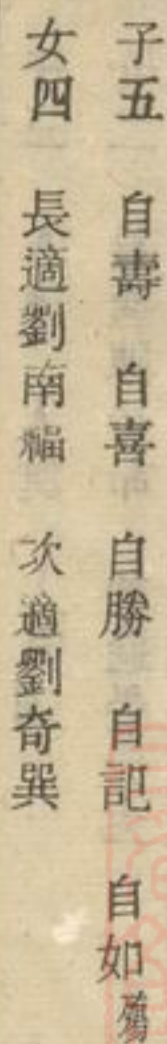 子五　自壽　自喜　自勝　自記　自如殤
女四　長適劉南福　次適劉奇巽